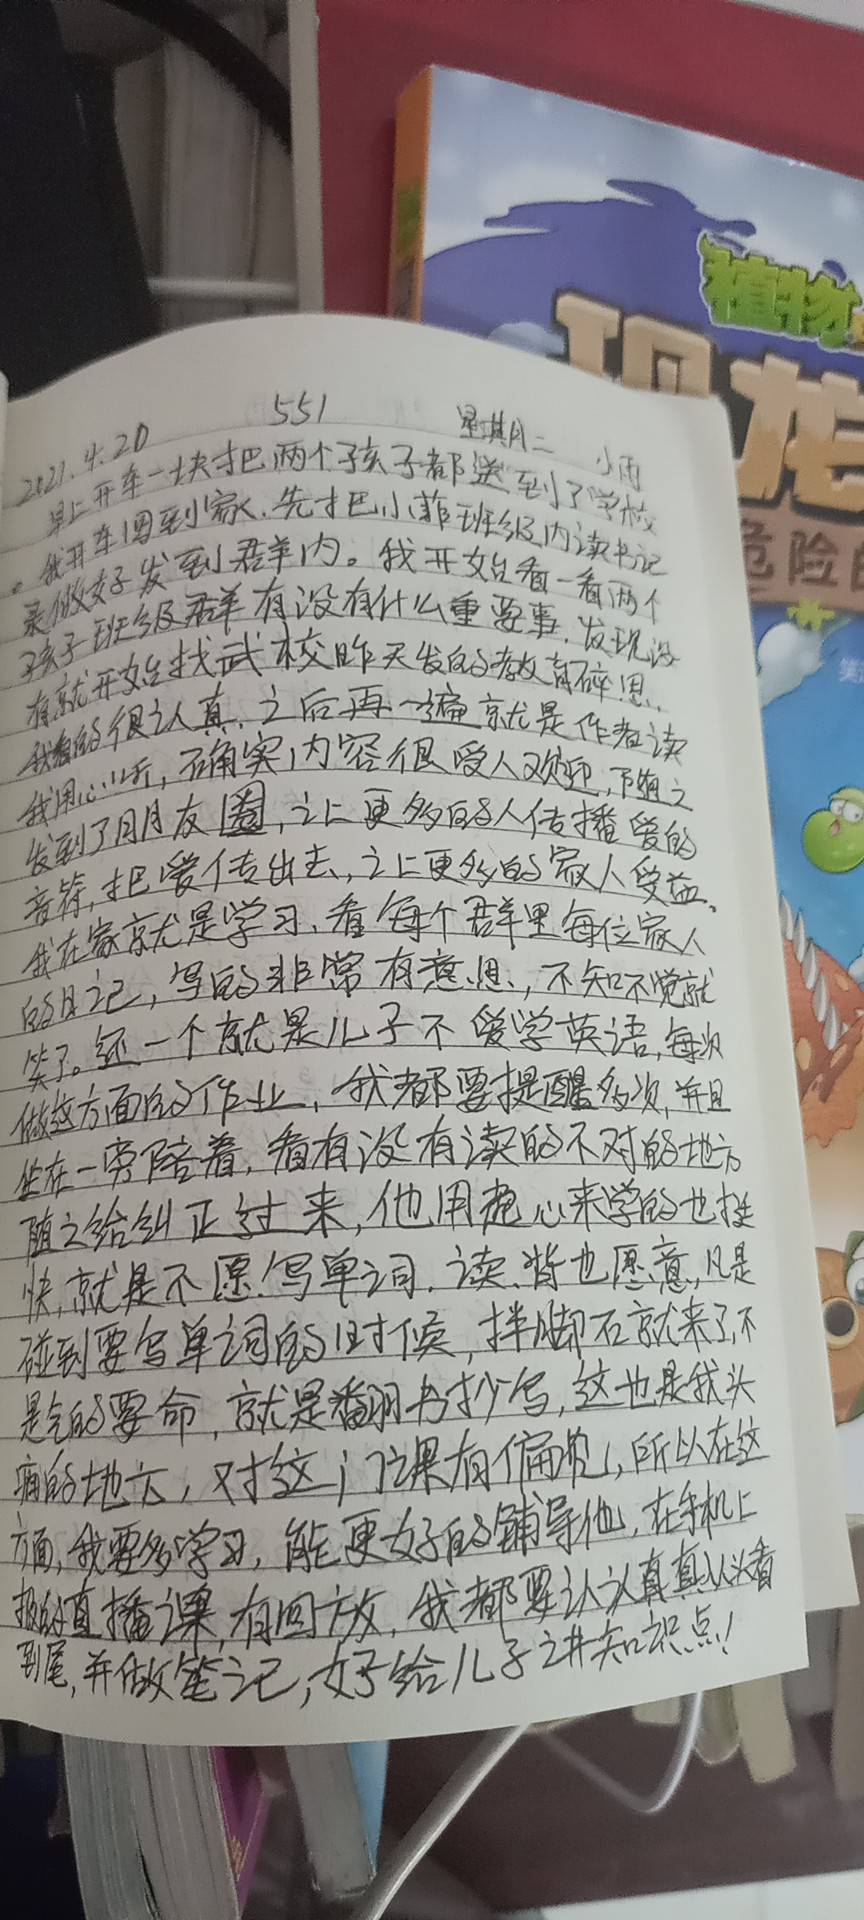 植物
恐龙
危险的
笑
2021.4.20 551 星期二 小雨
早上开车一块把两个孩子都送到了学校
。我开车回到家,先把小菲班级内读书记
录做好发到群内。我开始看一看两个
孩子班级群有没有什么重要事,发现没
有就开始找武校昨天发的教育碎思,
我看的很认真,之后再一遍就是作者读
我用心听,确实内容很受人欢迎,
发到了朋友圈,让更多的人传播爱的
音符,把爱传出去,让更多的家人受益。
我在家就是学习,看每个群里每位家人
的日记,写的非常有意思,不知不觉就
笑了。还一个就是儿子不爱学英语,每次
做这方面的作业,我都要提醒多次,并且
坐在一旁陪着,看有没有读的不对的地方
随之给纠正过来,他用起心来学的也挺
快,就是不愿写单词,读、背也愿意,凡是
碰到要写单词的时候,拌脚石就来了,不
是气的要命,就是翻书抄写,这也是我头
痛的地方,对这门课有偏见,所以在这
方面,我要多学习,能更好的辅导他,在手机上
报的直播课,有回放,我都要认认真真从头看
到尾,并做笔记,好给儿子讲知识点!